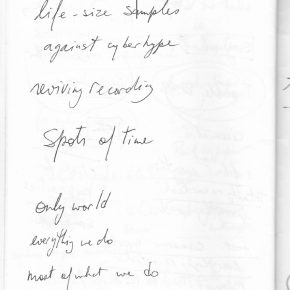 life-size samples
against cyberhype
reviving recording
Spots of time
only world
everything we do
most of what we do